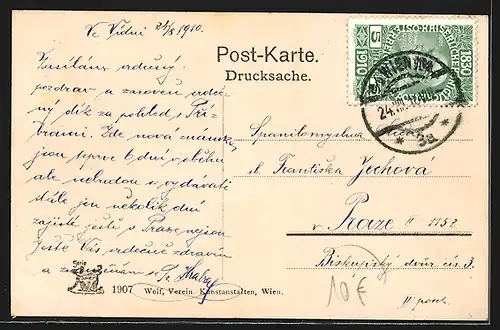 Ve Vídni 24/8 1910.
Zasílám srdečný
pozdrav a zároveň srdeč-
ný dík za pohled s Pří-
brami. Zde nová známka,
jsou teprve 6 dní v oběhu
ale nebudou se vydávati
stále jen několik dní
zajisté ještě v Praze nejsou
Ještě Vás srdečně zdravím
a
Post-Karte.
Drucksache.
1830
1910
5
WIEN
24. VIII. 10
* 3a *
Spanilomyslná
sl. Františka Jechová
v Praze II 1152
Biskupský dvůr čís. 3.
II posch.
10€
Serie
1907 Wolf, Verein. Kunstanstalten, Wien.